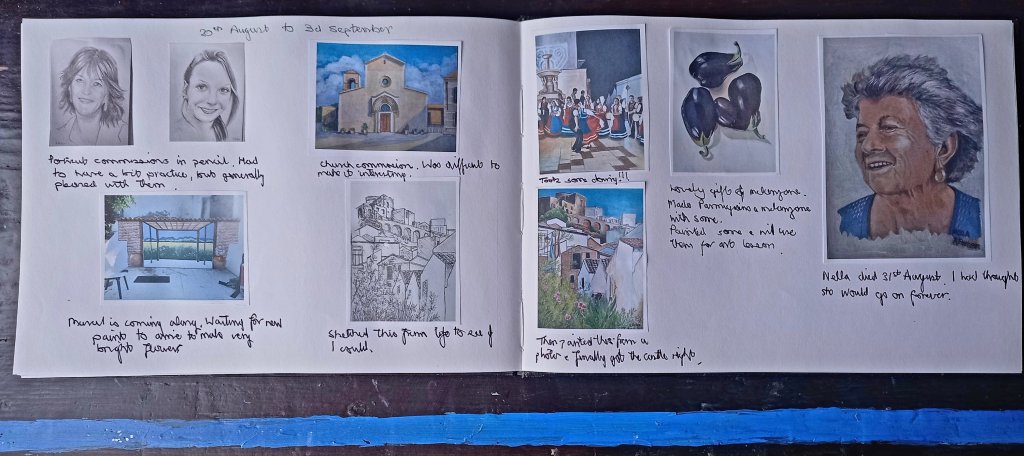 30th August to 3d September
Portrait commissions in pencil. Had
to have a bit practice, but generally
pleased with them.
Church commission. Was difficult to
make it interesting.
Mural is coming along. Waiting for new
paint to arrive to make very
bright flowers
Sketched this from life to see if
I could.
Took some doing!!!
Then painted this from a
photo & finally got the castle right.
Lovely gift of melanzane.
Made Parmigiana & melanzane
with some.
Painted some & will use
them for art lesson
Nella died 31st August. I had thought
she would go on forever.